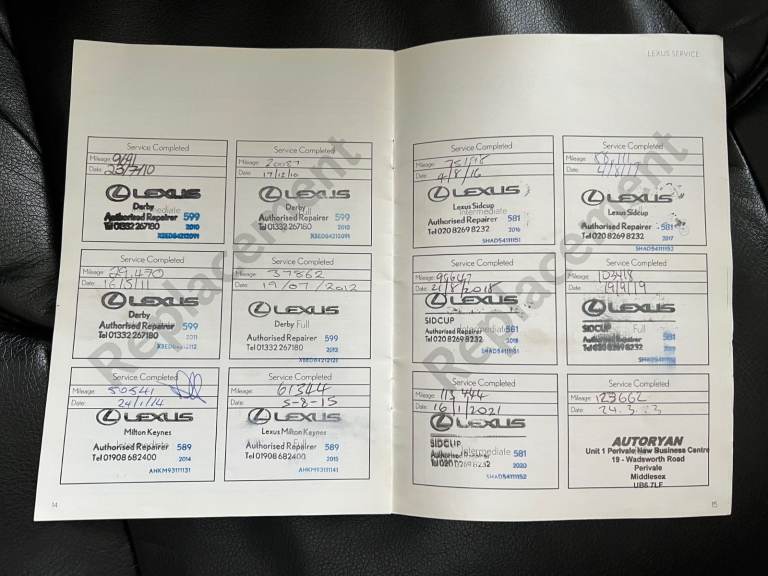 LEXUS SERVICE
Replacement
Service Completed
Mileage: 9191
Date: 23/7/10
LEXUS
Derby
Authorised Repairer 599
Intermediate
Tel 01332 267180 2010
XBED84212091
Service Completed
Mileage: 20087
Date: 17/12/10
LEXUS
Derby
Full
Authorised Repairer 599
Tel 01332 267180 2010
XBED84212091
Service Completed
Mileage: 29,470
Date: 16/5/11
LEXUS
Derby
Authorised Repairer 599
Tel 01332 267180 2011
Service Completed
Mileage: 37862
Date: 19/07/2012
LEXUS
Derby Full
Authorised Repairer 599
Tel 01332 267180 2012
XBED84212121
Service Completed
Mileage: 50541
Date: 24/1/14
LEXUS
Milton Keynes
Intermediate
Authorised Repairer 589
Tel 01908 682400 2014
AHKM93111131
Service Completed
Mileage: 61344
Date: 5-8-15
LEXUS
Lexus Milton Keynes
Full
Authorised Repairer 589
Tel 01908 682400 2015
AHKM93111141
14
Replacement
Service Completed
Mileage: 75118
Date: 4/8/16
LEXUS
Lexus Sidcup
Intermediate
Authorised Repairer 581
Tel 020 8269 8232 2016
SHAD54111151
Service Completed
Mileage:
Date: 4/8/17
LEXUS
Lexus Sidcup
Authorised Repairer
Tel 020 8269 8232 2017
SHAD54111152
Service Completed
Mileage: 96647
Date: 21/8/2018
LEXUS
SIDCUP
Intermediate
Authorised Repairer 581
Tel 020 8269 8232 2018
SHAD54111151
Service Completed
Mileage: 103418
Date: 19/9/19
LEXUS
SIDCUP
Full
Authorised Repairer 581
Tel 020 8269 8232
Service Completed
Mileage: 113444
Date: 16/1/2021
LEXUS
SIDCUP
Intermediate
Authorised Repairer 581
Tel 020 8269 8232 2020
SHAD54111152
Service Completed
Mileage: 123662
Date: 24.3.23
AUTORYAN
Unit 1 Perivale New Business Centre
19 - Wadsworth Road
Perivale
Middlesex
UB6 7LF
15